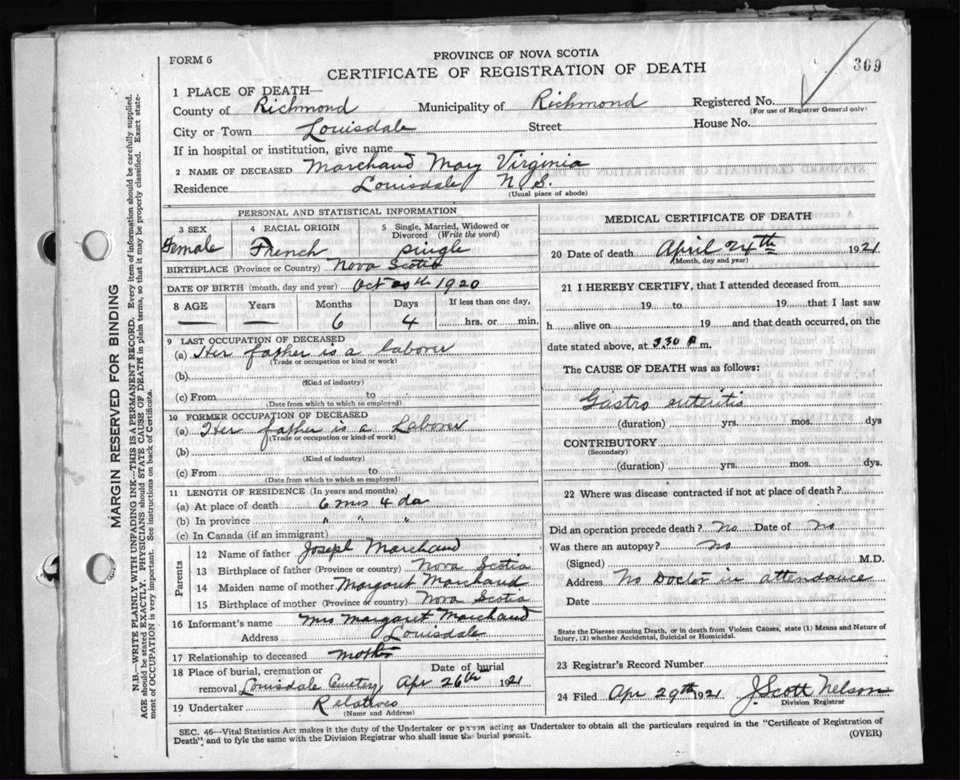 FORM 6
PROVINCE OF NOVA SCOTIA
CERTIFICATE OF REGISTRATION OF DEATH
369
1 PLACE OF DEATH—
County of Richmond Municipality of Richmond Registered No.
(For use of Registrar General only)
City or Town Louisdale Street House No.
If in hospital or institution, give name
2 NAME OF DECEASED Marchand Mary Virginia
Residence Louisdale N.S.
(Usual place of abode)
PERSONAL AND STATISTICAL INFORMATION
3 SEX 4 RACIAL ORIGIN 5 Single, Married, Widowed or Divorced (Write the word)
Female French single
BIRTHPLACE (Province or Country) Nova Scotia
DATE OF BIRTH (month, day and year) Oct 20th 1920
8 AGE Years Months Days If less than one day,
6 4 hrs. or min.
9 LAST OCCUPATION OF DECEASED
(a) Her father is a laborer
(Trade or occupation or kind of work)
(b)
(Kind of industry)
(c) From to
(Date from which to which so employed)
10 FORMER OCCUPATION OF DECEASED
(a) Her father is a Laborer
(Trade or occupation or kind of work)
(b)
(Kind of industry)
(c) From to
(Date from which to which so employed)
11 LENGTH OF RESIDENCE (In years and months)
(a) At place of death 6 mos 4 da
(b) In province " " "
(c) In Canada (if an immigrant)
Parents
12 Name of father Joseph Marchand
13 Birthplace of father (Province or country) Nova Scotia
14 Maiden name of mother Margaret Marchand
15 Birthplace of mother (Province or country) Nova Scotia
16 Informant's name Mrs Margaret Marchand
Address Louisdale
17 Relationship to deceased mother
18 Place of burial, cremation or Date of burial
removal Louisdale Cemetery Apr 26th 1921
19 Undertaker Relatives
(Name and Address)
MEDICAL CERTIFICATE OF DEATH
20 Date of death April 24th 1921
(Month, day and year)
21 I HEREBY CERTIFY, that I attended deceased from
19 to 19 that I last saw
h alive on 19 and that death occurred, on the
date stated above, at 3 30 P m.
The CAUSE OF DEATH was as follows:
Gastro enteritis
(duration) yrs. mos. dys
CONTRIBUTORY
(Secondary)
(duration) yrs. mos. dys.
22 Where was disease contracted if not at place of death?
Did an operation precede death? No Date of No
Was there an autopsy? No
(Signed) M.D.
Address No Doctor in attendance
Date
State the Disease causing Death, or in death from Violent Causes, state (1) Means and Nature of
Injury, (2) whether Accidental, Suicidal or Homicidal.
23 Registrar's Record Number
24 Filed Apr 29th 1921 J. Scott Nelson
Division Registrar
SEC. 46—Vital Statistics Act makes it the duty of the Undertaker or person acting as Undertaker to obtain all the particulars required in the "Certificate of Registration of
Death" and to fyle the same with the Division Registrar who shall issue the burial permit.
(OVER)
MARGIN RESERVED FOR BINDING
N.B.—WRITE PLAINLY WITH UNFADING INK—THIS IS A PERMANENT RECORD. Every item of information should be carefully supplied.
AGE should be stated EXACTLY. PHYSICIANS should STATE CAUSE OF DEATH in plain terms, so that it may be properly classified. Exact state-
ment of OCCUPATION is very important. See instructions on back of Certificate.